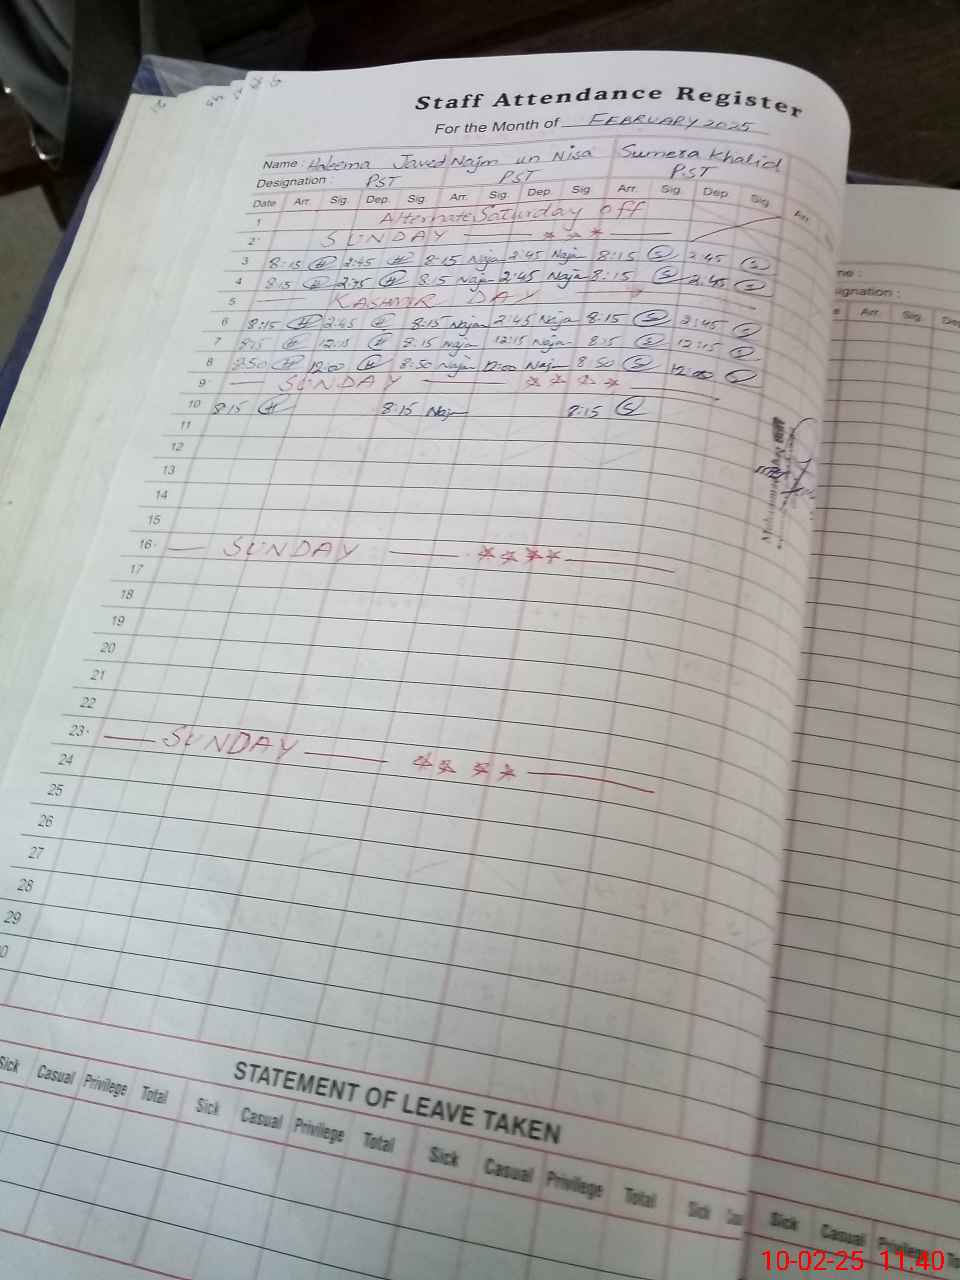 Staff Attendance Register
For the Month of FEBRUARY 2025
Name : Haleema Javed Najm un Nisa Sumera Khalid
Designation : PST PST PST
Date Arr. Sig. Dep. Sig. Arr. Sig. Dep. Sig. Arr. Sig. Dep. Sig. Arr.
1 Alternate Saturday off
2 SUNDAY
3 8:15 H 2:45 H 8:15 Najm 2:45 Najm 8:15 S 2:45 S
4 8:15 H 2:45 H 8:15 Najm 2:45 Najm 8:15 S 2:45 S
5 KASHMIR DAY
6 8:15 H 2:45 H 8:15 Najm 2:45 Najm 8:15 S 2:45 S
7 8:15 H 12:15 H 8:15 Najm 12:15 Najm 8:15 S 12:15 S
8 8:50 H 12:00 H 8:50 Najm 12:00 Najm 8:50 S 12:00 S
9 SUNDAY
10 8:15 H 8:15 Najm 8:15 S
11
12
13
14
15
16 SUNDAY
17
18
19
20
21
22
23 SUNDAY
24
25
26
27
28
29
STATEMENT OF LEAVE TAKEN
Sick Casual Privilege Total Sick Casual Privilege Total Sick Casual Privilege Total Sick
Arr. Sig.
Sick Casual Privilege
10-02-25 11.40